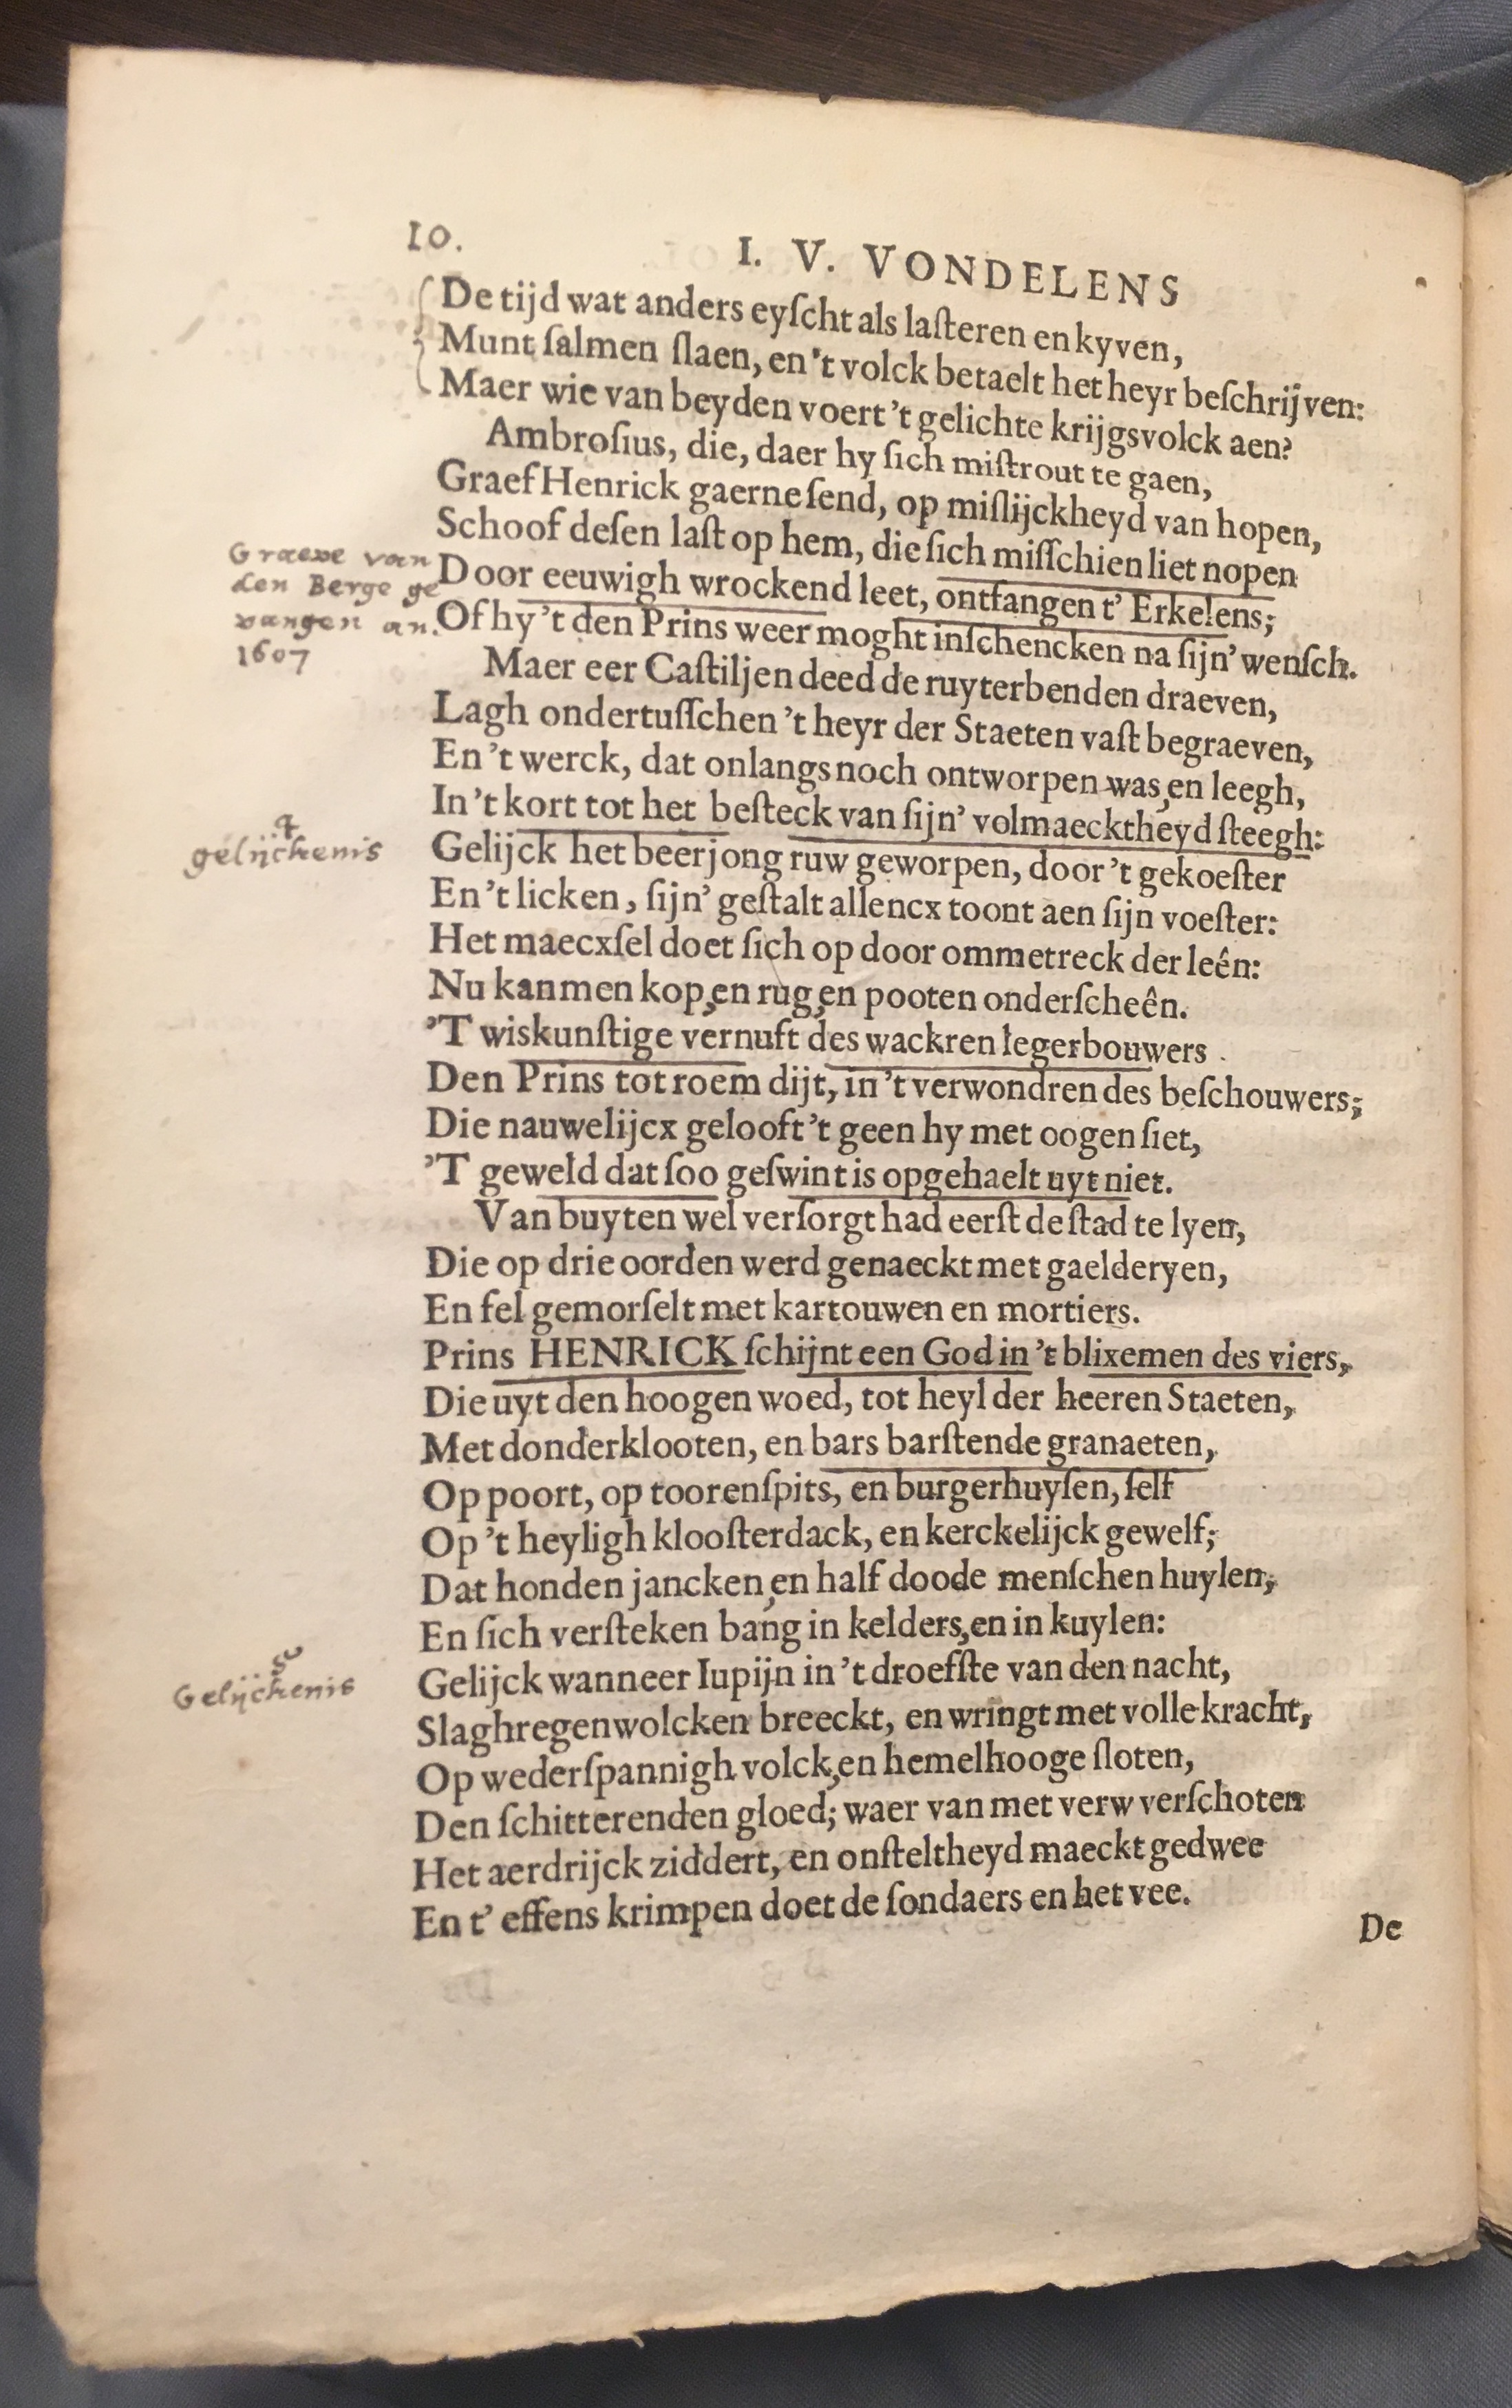 10.
I. V. VONDELENS
De tijd wat anders eyſcht als laſteren en kyven,
Munt ſalmen ſlaen, en 't volck betaelt het heyr beſchrijven:
Maer wie van beyden voert 't gelichte krijgsvolck aen?
Ambroſius, die, daer hy ſich miſtrout te gaen,
Graef Henrick gaerne ſend, op miſlijckheyd van hopen,
Schoof deſen laſt op hem, die ſich miſſchien liet nopen
Graeve van
den Berge ge
vangen an.
1607
Door eeuwigh wrockend leet, ontfangen t' Erkelens;
Of hy 't den Prins weer moght inſchencken na ſijn' wenſch.
Maer eer Caſtiljen deed de ruyterbenden draeven,
Lagh ondertuſſchen 't heyr der Staeten vaſt begraeven,
En 't werck, dat onlangs noch ontworpen was, en leegh,
In 't kort tot het beſteck van ſijn' volmaecktheyd ſteegh:
4
gelijckenis
Gelijck het beerjong ruw geworpen, door 't gekoeſter
En 't licken, ſijn' geſtalt allencx toont aen ſijn voeſter:
Het maecxſel doet ſich op door ommetreck der leên:
Nu kanmen kop, en rug, en pooten onderſcheên.
'T wiskunſtige vernuft des wackren legerbouwers
Den Prins tot roem dijt, in 't verwondren des beſchouwers;
Die nauwelijcx gelooft 't geen hy met oogen ſiet,
'T geweld dat ſoo geſwint is opgehaelt uyt niet.
Van buyten wel verſorgt had eerſt de ſtad te lyen,
Die op drie oorden werd genaeckt met gaelderyen,
En fel gemorſelt met kartouwen en mortiers.
Prins HENRICK ſchijnt een God in 't blixemen des viers,
Die uyt den hoogen woed, tot heyl der heeren Staeten,
Met donderklooten, en bars barſtende granaeten,
Op poort, op toorenſpits, en burgerhuyſen, ſelf
Op 't heyligh klooſterdack, en kerckelijck gewelf;
Dat honden jancken, en half doode menſchen huylen,
En ſich verſteken bang in kelders, en in kuylen:
5
Gelijckenis
Gelijck wanneer Iupijn in 't droefſte van den nacht,
Slaghregenwolcken breeckt, en wringt met volle kracht,
Op wederſpannigh volck, en hemelhooge ſloten,
Den ſchitterenden gloed; waer van met verw verſchoten
Het aerdrijck ziddert, en onſteltheyd maeckt gedwee
En t' effens krimpen doet de ſondaers en het vee.
De